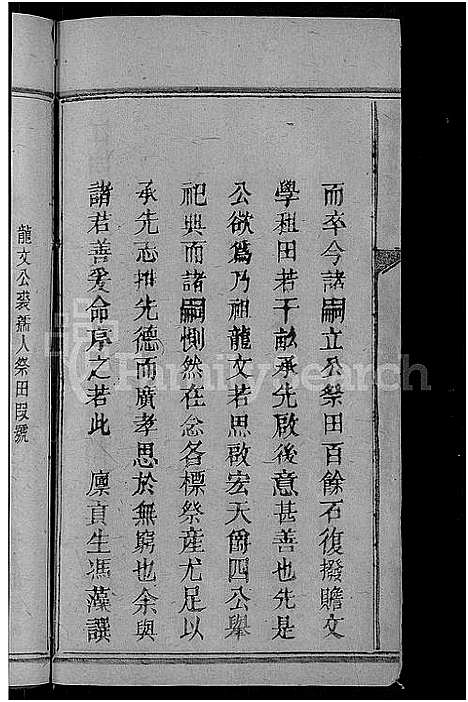 而卒今諸嗣立公祭田百餘石復撥贍文
學租田若干畝承先啟後意甚善也先是
公欲爲乃祖龍文若思啟宏天爵四公舉
祀典而諸嗣惻然在念各標祭產尤足以
承先志推先德而廣孝思於無窮也余與
諸君善爰命序之若此 廩貢生馮藻譔
龍文公裴孺人祭田叚號
FamilySearch